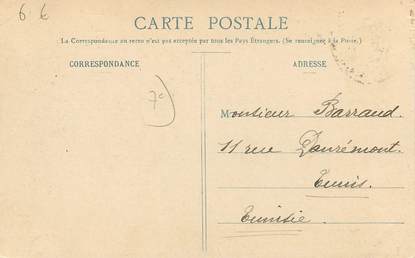 6 €
CARTE POSTALE
La Correspondance au recto n'est pas acceptée par tous les Pays Étrangers. (Se renseigner à la Poste.)
CORRESPONDANCE
ADRESSE
7€
Monsieur Barraud.
11 rue Danrémont.
Tunis.
Tunisie.